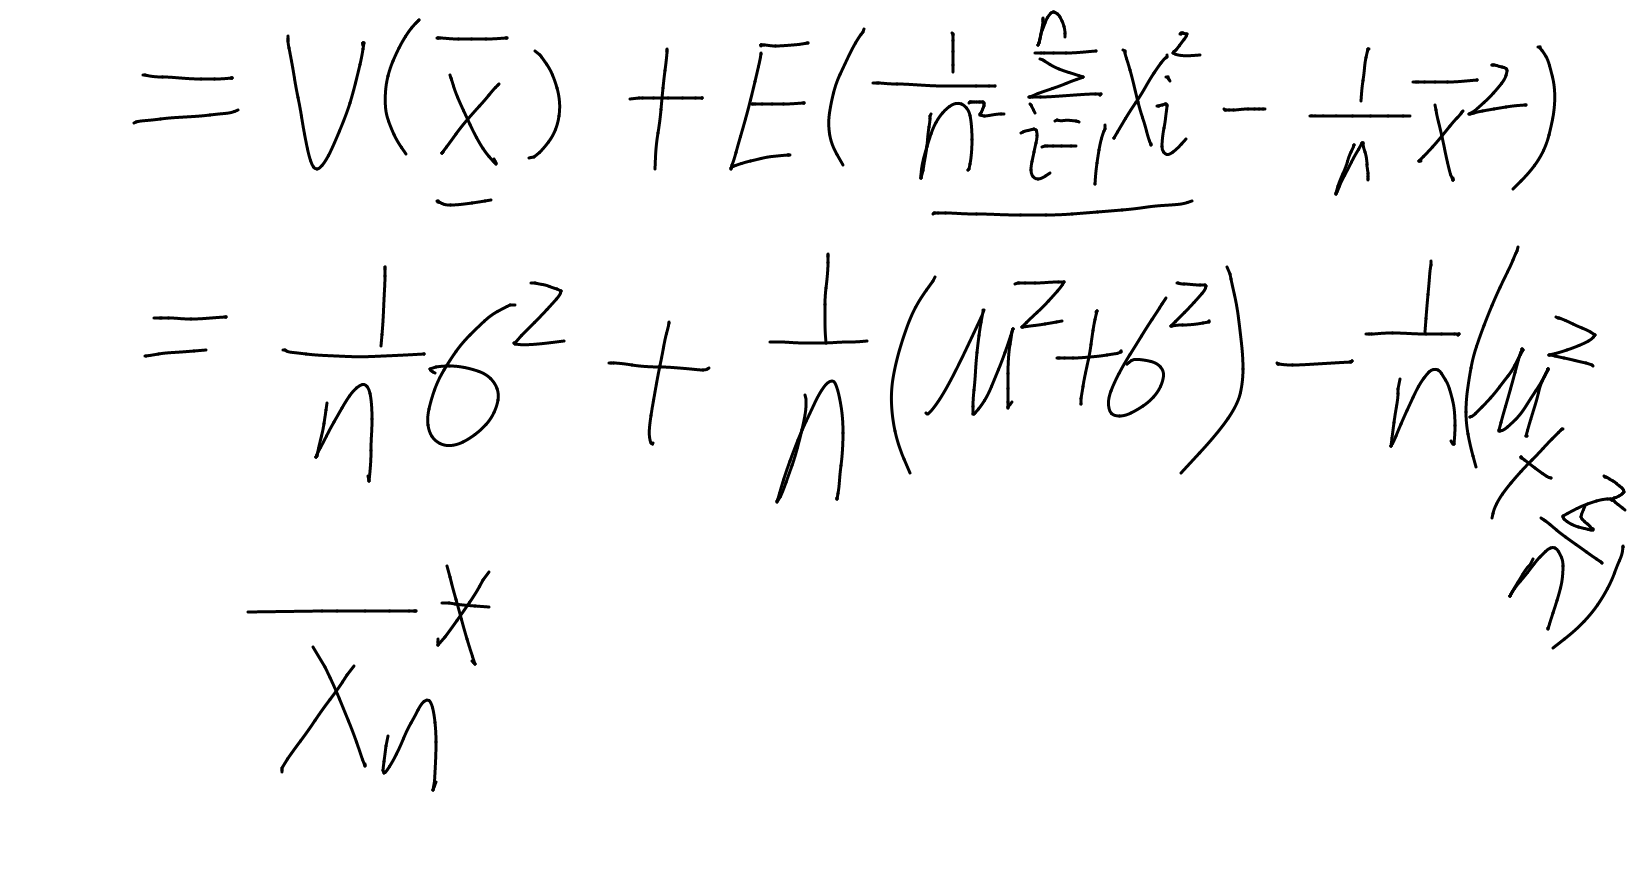 = V(X̄) + E(1/n² Σⁿᵢ₌₁ Xᵢ² − 1/n X̄²)
= 1/n σ² + 1/n (μ² + σ²) − 1/n (μ² + σ²/n)
X̄ₙ*